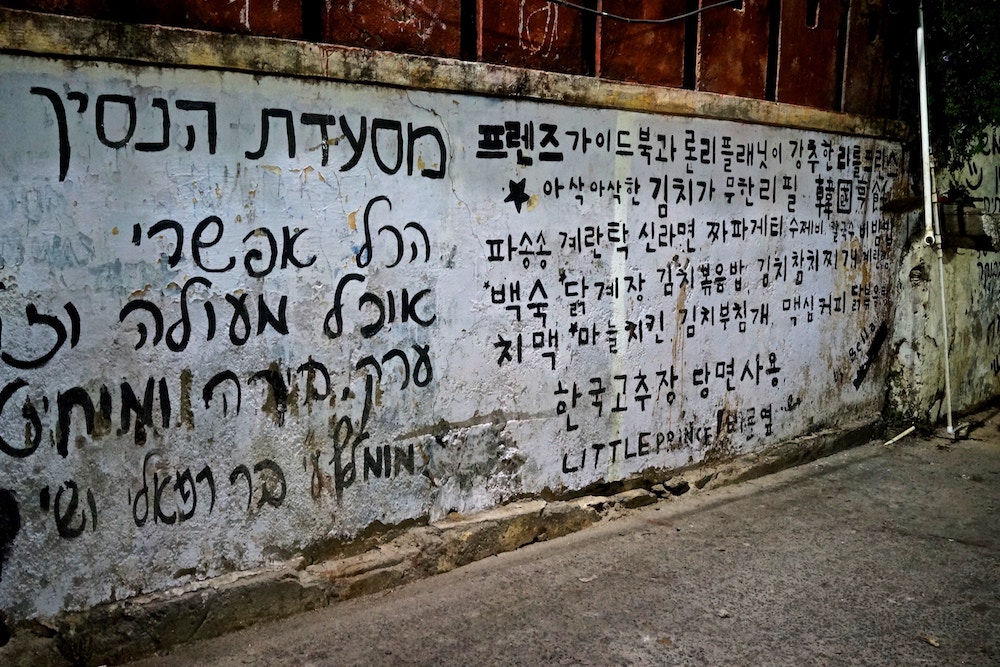 מסעדת הנסיך
הכל אפשרי
אוכל מעולה וזו
ערק, בירה ומוחיטו
מומלץ ע״י בר רפאלי ושי
프렌즈 가이드북과 론리플래닛이 강추한 라를프린스
★ 아삭아삭한 김치가 무한리필 韓國
파송송 계란탁 신라면 짜파게티 수제비 칼국수 비빔밥
*백숙 *닭계장 김치볶음밥, 김치참치찌개 계란찜
치맥 *마늘치킨, 김치부침개, 맥심커피 닭볶음탕
한국고추장, 당면사용,
LITTLE PRINCE 바른옆